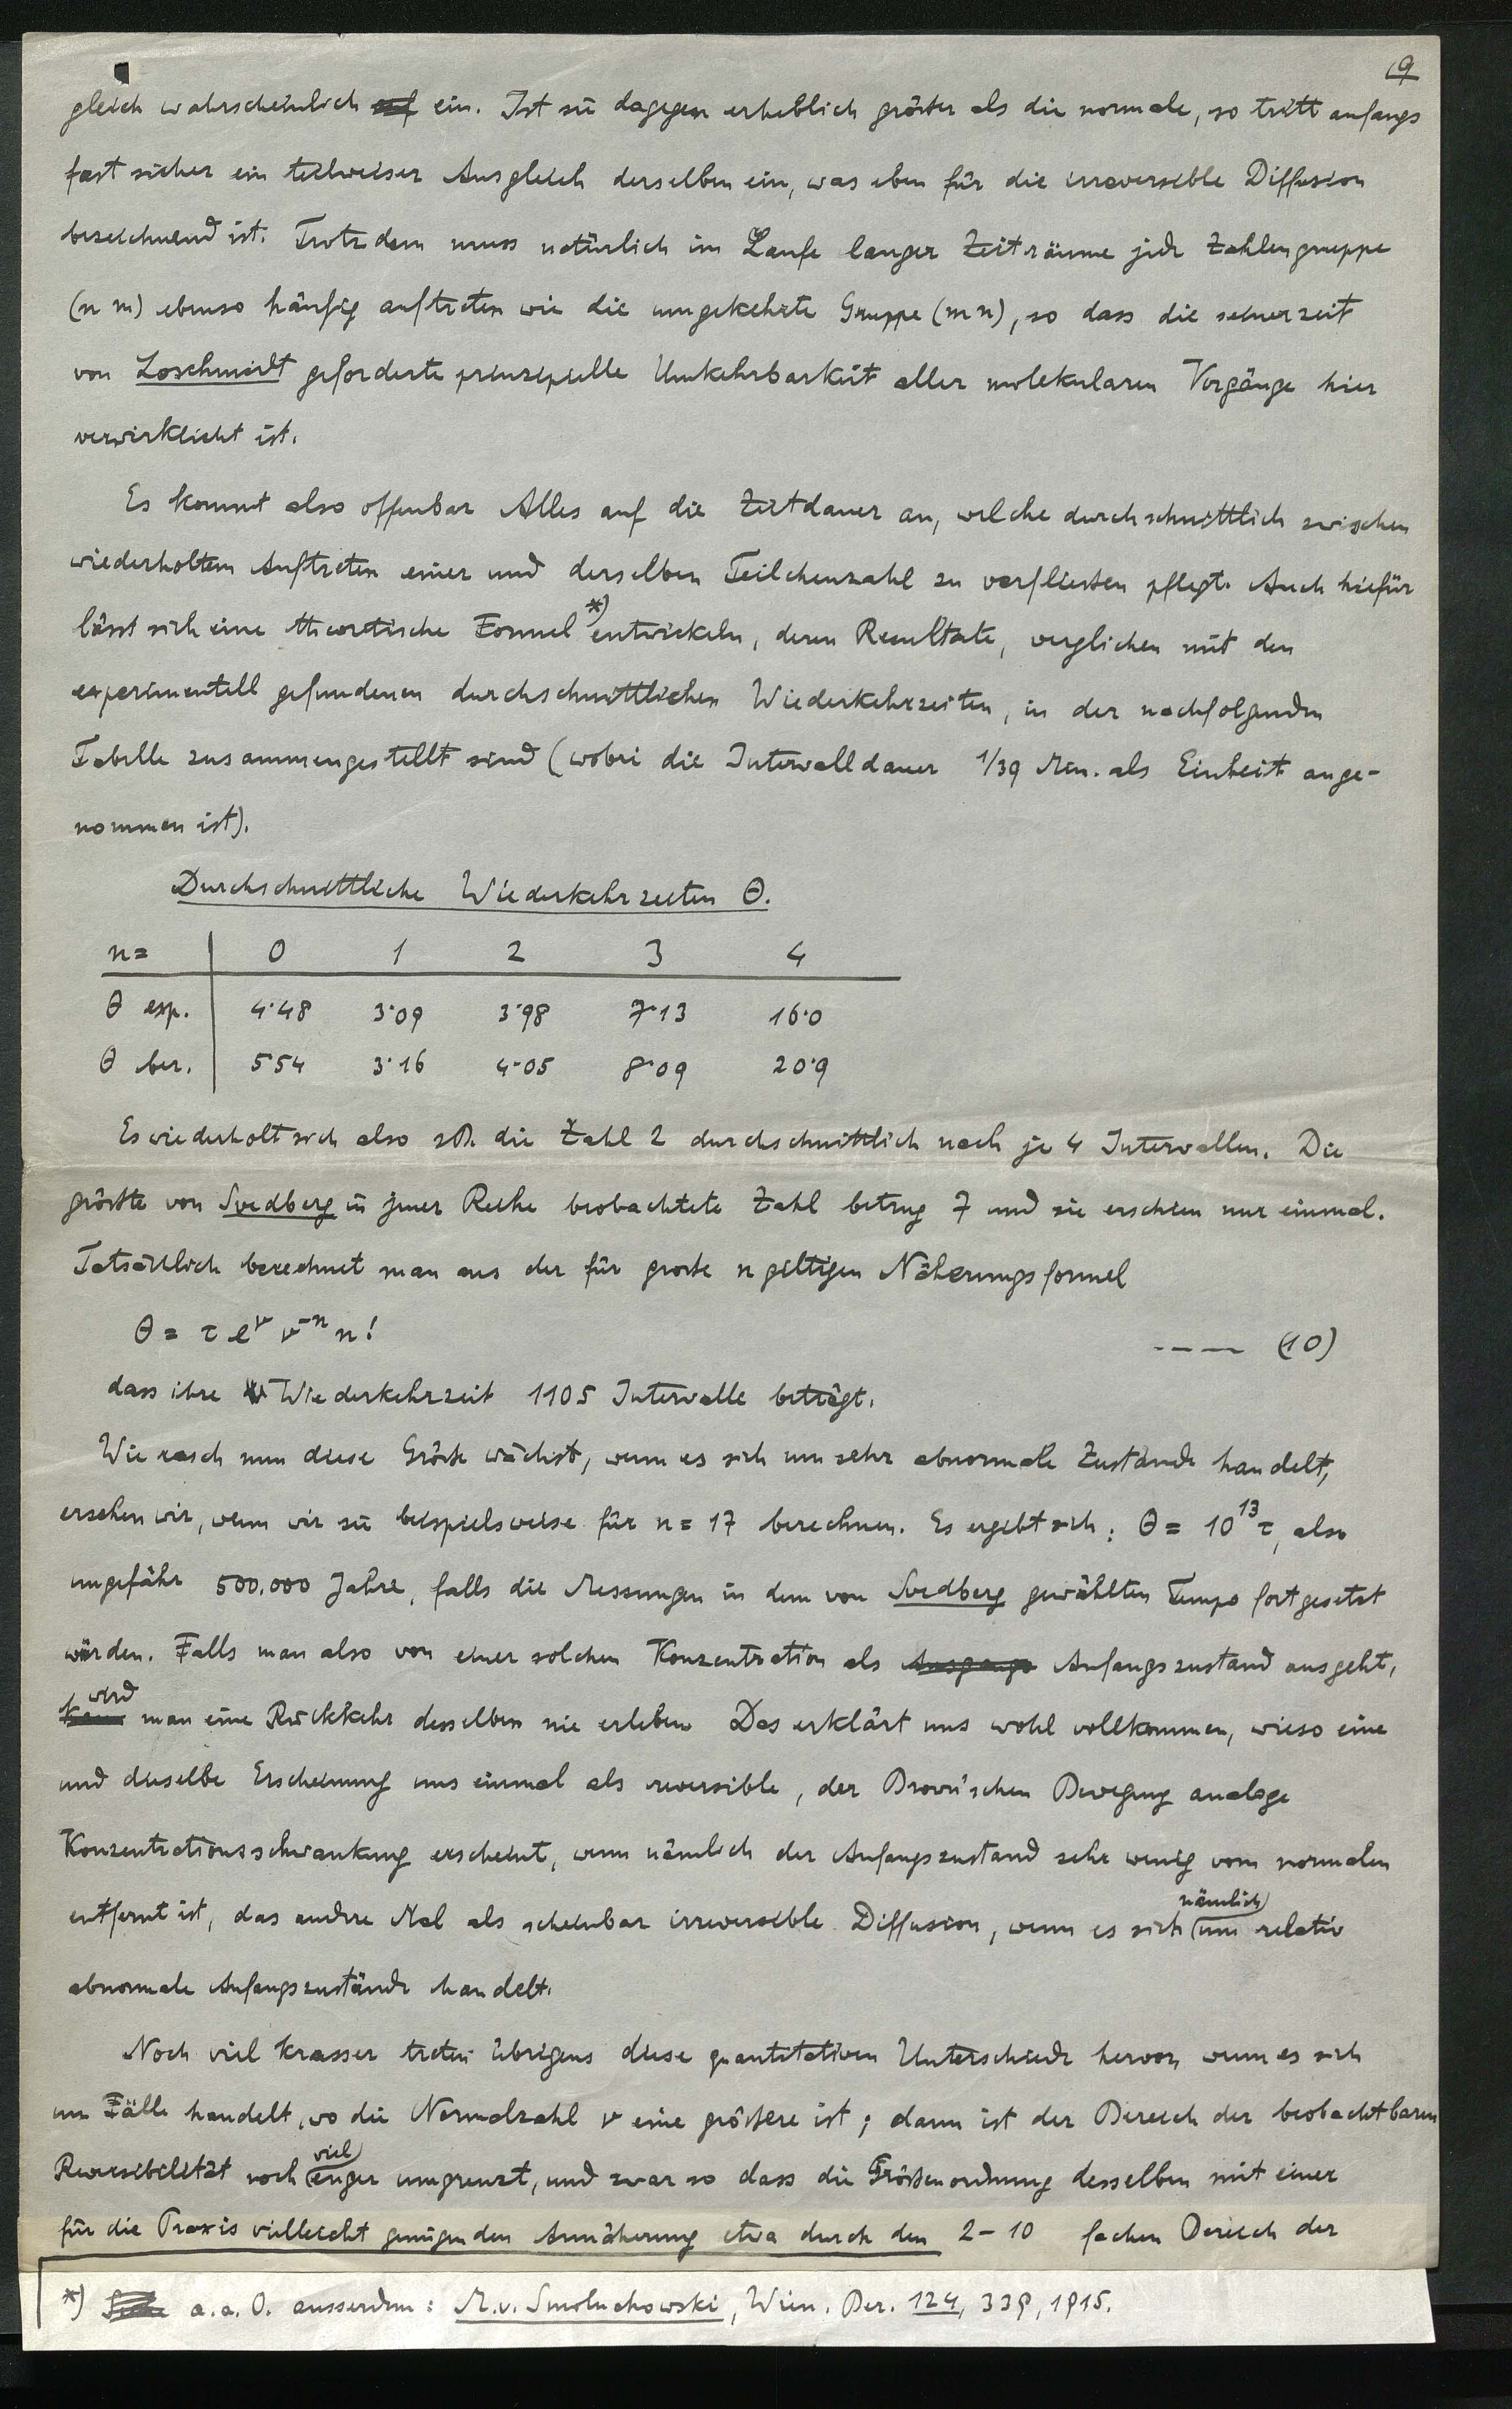 9
gleich wahrscheinlich auf ein. Ist sie dagegen erheblich größer als die normale, so tritt anfangs
fast sicher ein teilweiser Ausgleich derselben ein, was eben für die irreversible Diffusion
bezeichnend ist. Trotzdem muss natürlich im Laufe langer Zeiträume jede Zahlengruppe
(n m) ebenso häufig auftreten wie die umgekehrte Gruppe (m n), so dass die seinerzeit
von Loschmidt geforderte prinzipielle Umkehrbarkeit aller molekularen Vorgänge hier
verwirklicht ist.
Es kommt also offenbar Alles auf die Zeitdauer an, welche durchschnittlich zwischen
wiederholtem Auftreten einer und derselben Teilchenzahl zu verfließen pflegt. Auch hiefür
lässt sich eine theoretische Formel *) entwickeln, deren Resultate, verglichen mit den
experimentell gefundenen durchschnittlichen Wiederkehrzeiten, in der nachfolgenden
Tabelle zusammengestellt sind (wobei die Intervalldauer 1/39 Min. als Einheit ange-
nommen ist).
Durchschnittliche Wiederkehrzeiten Θ.
n= 0 1 2 3 4
Θ exp. 4·48 3·09 3·98 7·13 16·0
Θ ber. 5·54 3·16 4·05 8·09 20·9
Es wiederholt sich also zB. die Zahl 2 durchschnittlich nach je 4 Intervallen. Die
größte von Svedberg in jener Reihe beobachtete Zahl betrug 7 und sie erschien nur einmal.
Tatsächlich berechnet man aus der für große n gültigen Näherungsformel
Θ = τ e^ν ν^-n n! ---- (10)
dass ihre Wiederkehrzeit 1105 Intervalle beträgt.
Wie rasch nun diese Größe wächst, wenn es sich um sehr abnormale Zustände handelt,
ersehen wir, wenn wir sie beispielsweise für n = 17 berechnen. Es ergibt sich: Θ = 10^13 τ, also
ungefähr 500.000 Jahre, falls die Messungen in dem von Svedberg gewählten Tempo fortgesetzt
würden. Falls man also von einer solchen Konzentration als Ausgangs Anfangszustand ausgeht,
kann wird man eine Rückkehr desselben nie erleben Das erklärt uns wohl vollkommen, wieso eine
und dieselbe Erscheinung uns einmal als reversible, der Brown'schen Bewegung analoge
Konzentrationsschwankung erscheint, wenn nämlich der Anfangszustand sehr wenig vom normalen
entfernt ist, das andre Mal als scheinbar irreversible Diffusion, wenn es sich nämlich um relativ
abnormale Anfangszustände handelt.
Noch viel krasser treten übrigens diese quantitativen Unterschiede hervor, wenn es sich
um Fälle handelt, wo die Normalzahl ν eine größere ist; dann ist der Bereich der beobachtbaren
Reversibilität noch viel enger umgrenzt, und zwar so dass die Größenordnung desselben mit einer
für die Praxis vielleicht genügenden Annäherung etwa durch den 2-10 fachen Bereich der
*) Siehe a. a. O. ausserdem: M. v. Smoluchowski, Wien. Ber. 124, 339, 1915.